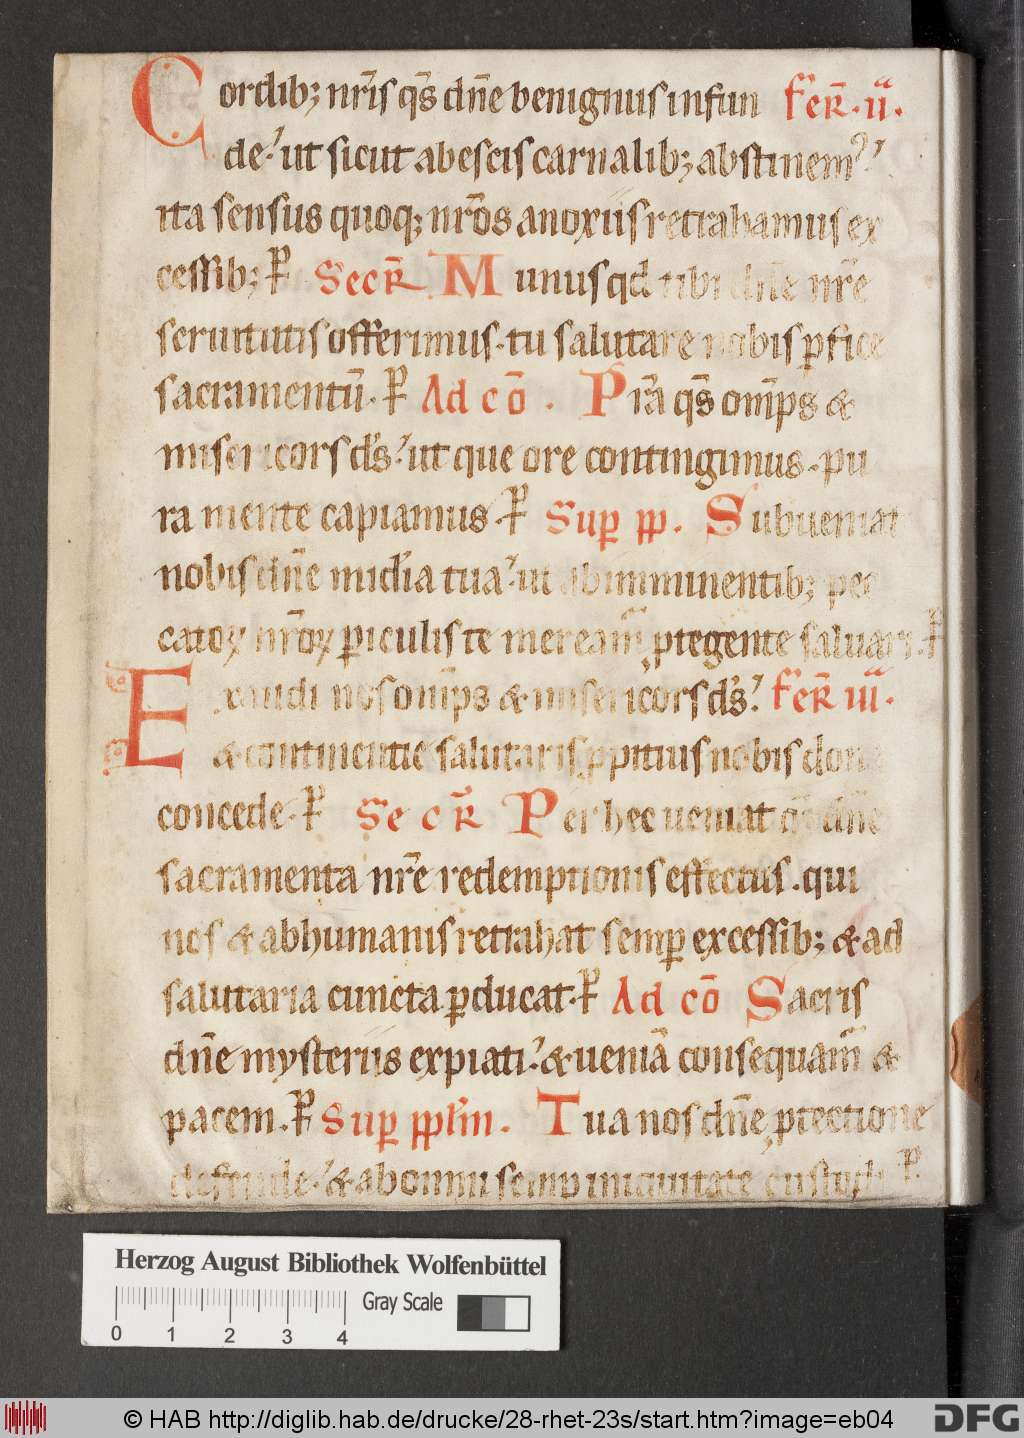 Cordib; nr̄is qs̄ dn̄e benignus infun fer̄. ii.
de. ut sicut ab escis carnalib; abstinem᷒
ita sensus quoq; nr̄os a noxiis retrahamus ex
cessib; p̄ Secr̄. Munus qd tibi dn̄e nr̄e
seruitutis offerimus. tu salutare nobis ꝑfice
sacramentū. p̄ Ad cō. Pr̄a qs̄ omp̄s &
misericors ds̄. ut que ore contingimus. pu
ra mente capiamus. p̄ Suꝑ pp. Subueniat
nobis dn̄e mīdia tua. ut ab imminentib; pec
catoꝝ nr̄oꝝ ꝑiculis te meream̄ ꝓtegente saluari. p̄
Exaudi nos omp̄s & misericors ds̄. fer̄ iii.
& continentie salutaris ꝓpitius nobis dona
concede. p̄ Secr̄ Per hec ueniat qs̄ dn̄e
sacramenta nr̄e redemptionis effectus. qui
nos & ab humanis retrahat semꝑ excessib; & ad
salutaria cuncta ꝑducat. p̄ Ad cō Sacris
dn̄e mysteriis expiati. & ueniā consequam̄ &
pacem. p̄ Suꝑ pplm̄. Tua nos dn̄e ꝓtectione
defende. & ab omni semꝑ iniquitate custodi p̄
Herzog August Bibliothek Wolfenbüttel
0 1 2 3 4 Gray Scale
© HAB http://diglib.hab.de/drucke/28-rhet-23s/start.htm?image=eb04 DFG